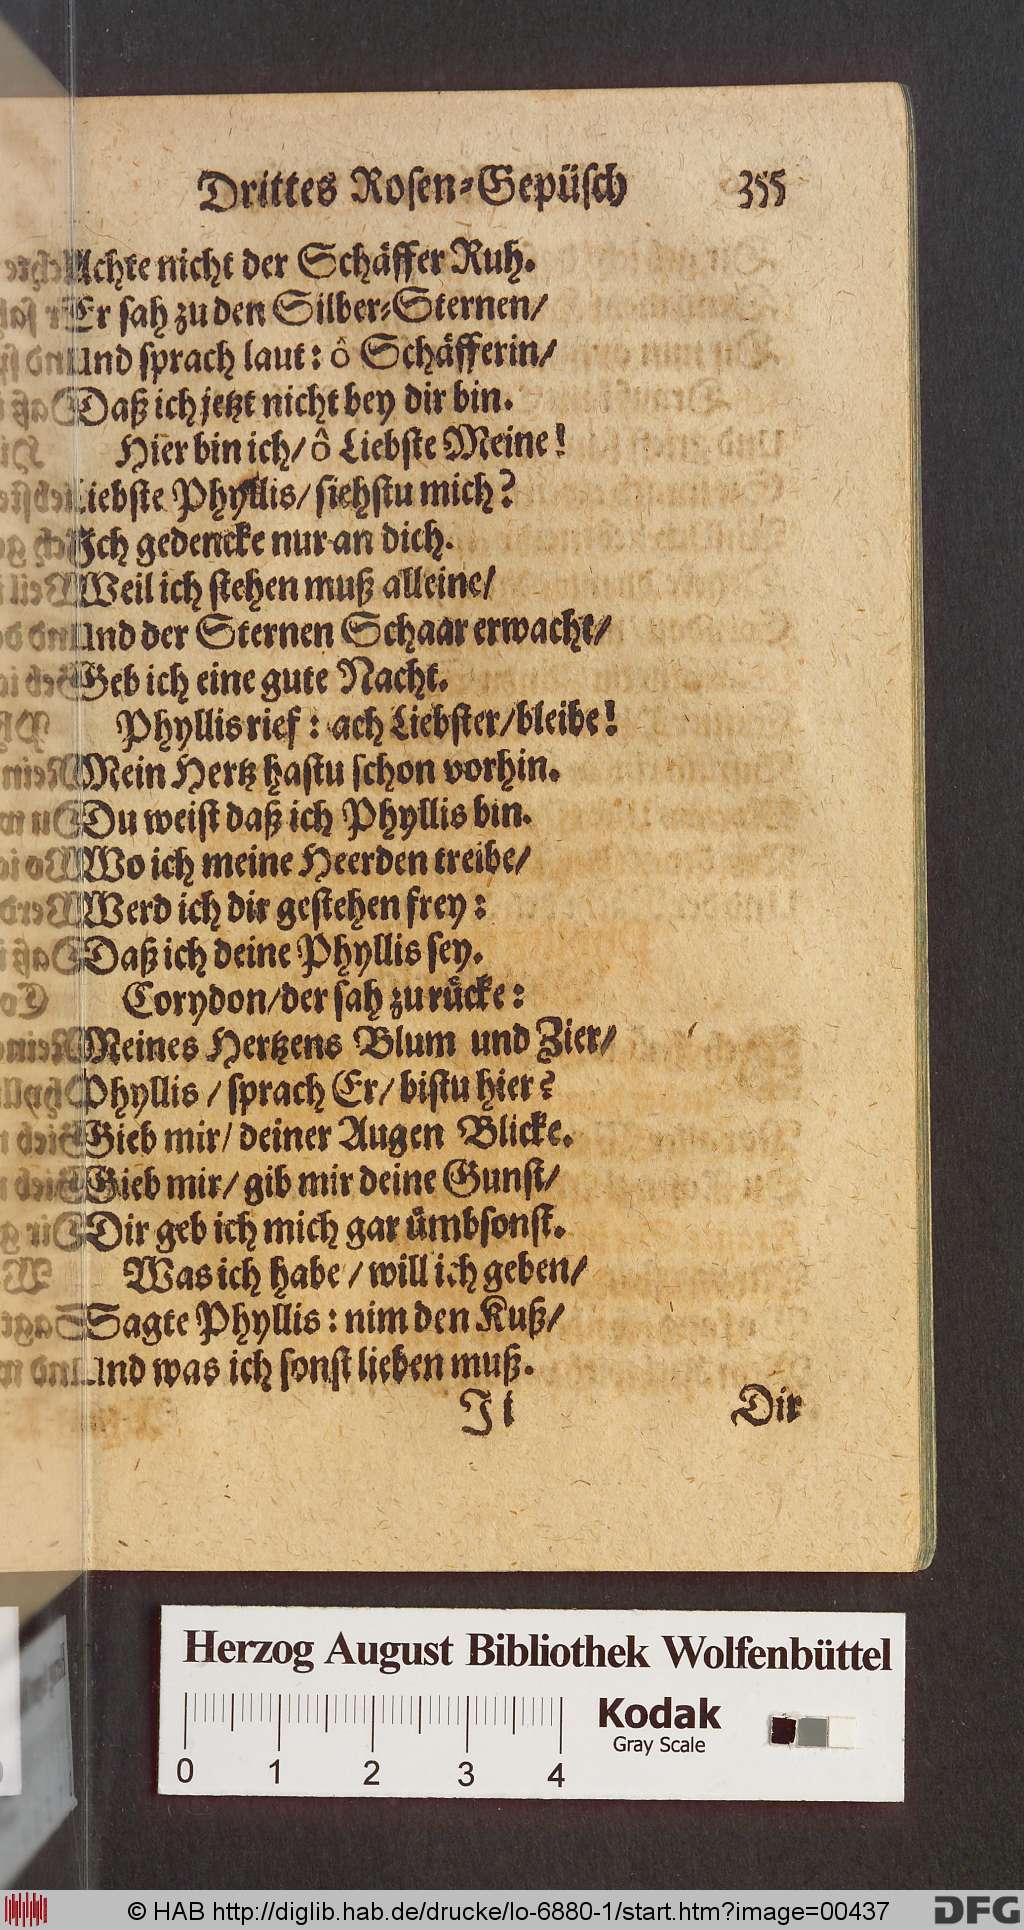 Drittes Rosen-Gepüsch 355
Achte nicht der Schäffer Ruh.
Er sah zu den Silber-Sternen/
Und sprach laut: ô Schäfferin/
Daß ich jetzt nicht bey dir bin.
Hier bin ich/ ô Liebste Meine!
Liebste Phyllis/ siehstu mich?
Ich gedencke nur an dich.
Weil ich stehen muß alleine/
Und der Sternen Schaar erwacht/
Geb ich eine gute Nacht.
Phyllis rief: ach Liebster/ bleibe!
Mein Hertz hastu schon vorhin.
Du weist daß ich Phyllis bin.
Wo ich meine Heerden treibe/
Werd ich dir gestehen frey:
Daß ich deine Phyllis sey.
Corydon/ der sah zu rücke:
Meines Hertzens Blum und Zier/
Phyllis / sprach Er/ bistu hier?
Gieb mir/ deiner Augen Blicke.
Gieb mir/ gib mir deine Gunst/
Dir geb ich mich gar ümbsonst.
Was ich habe / will ich geben/
Sagte Phyllis: nim den Kuß/
Und was ich sonst lieben muß.
Ii Dir
Herzog August Bibliothek Wolfenbüttel
Kodak
Gray Scale
0 1 2 3 4
© HAB http://diglib.hab.de/drucke/lo-6880-1/start.htm?image=00437
DFG